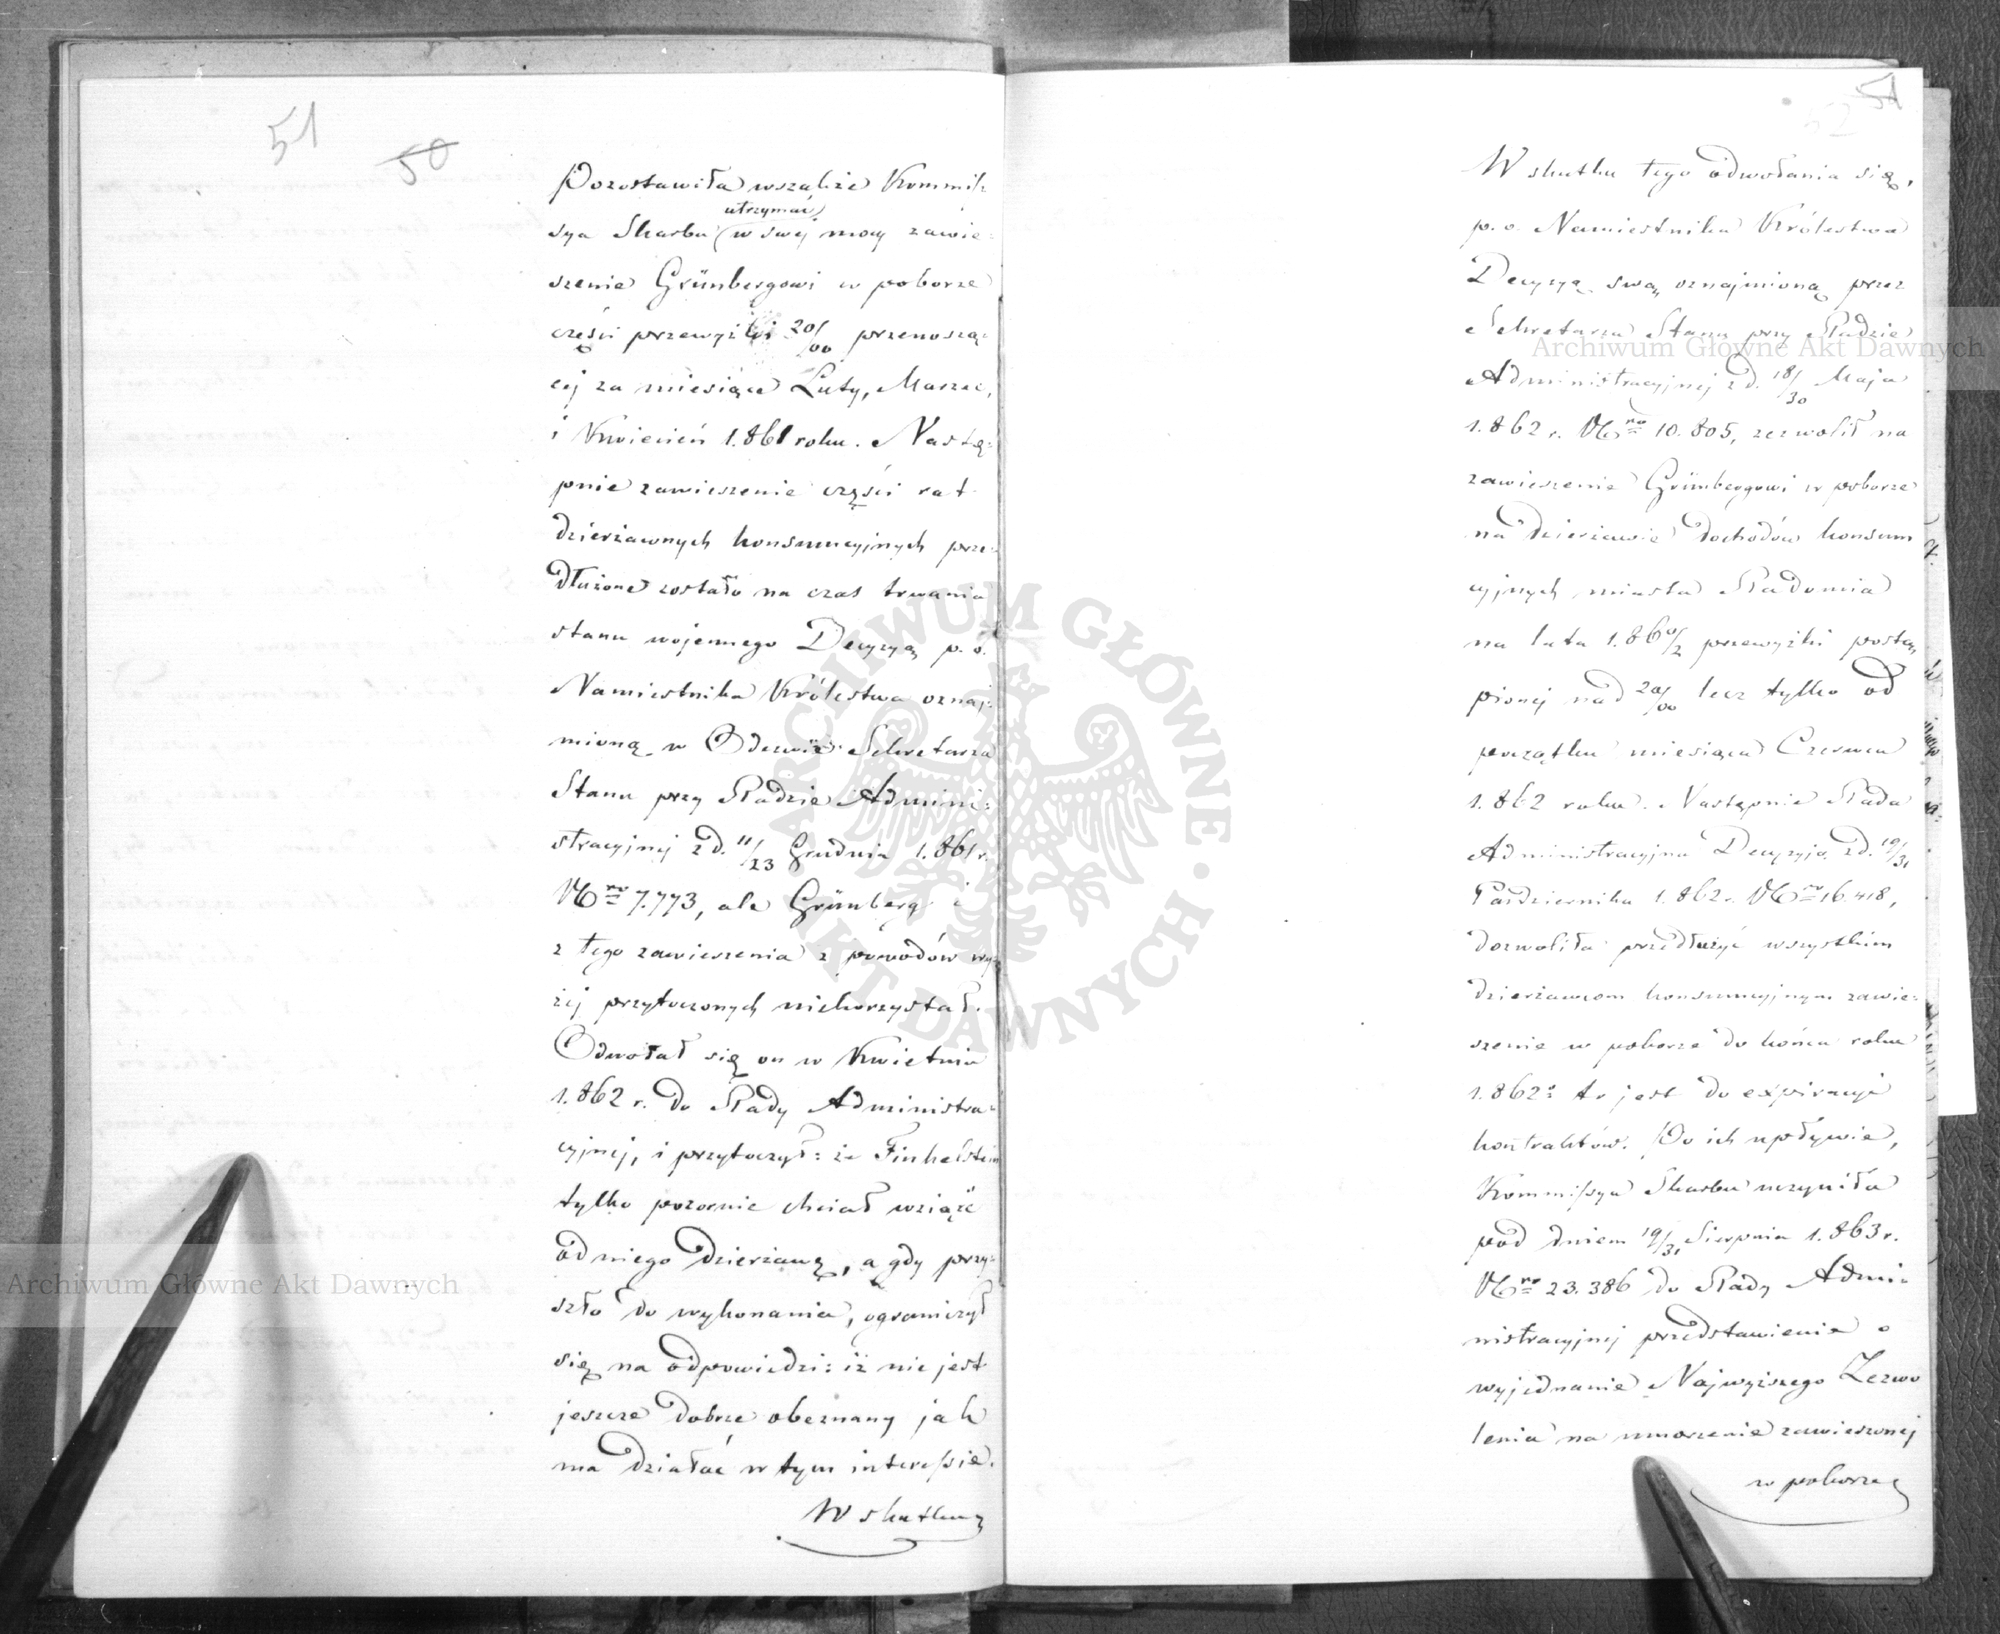 51
50
Pozostawiła wszakże Kommis-
utrzymać
sya Skarbu w swej mocy zawie=
szenie Grünbergowi w poborze
części przewyżki 20/00 przenoszą=
cej za miesiące Luty, Marzec,
i Kwiecień 1.861 roku. Nastę=
pnie zawieszenie części rat
dzierżawnych konsumcyjnych prze=
dłużone zostało na czas trwania
stanu wojennego Decyzyą p. o.
Namiestnika Królestwa oznaj=
mioną w Odezwie Sekretarza
Stanu przy Radzie Admini=
stracyjnej z d. 11/23 Grudnia 1.861 r.
Nro 7.773, ale Grünberg i
z tego zawieszenia z powodów wy=
żej przytoczonych niekorzystał.
Odwołał się on w Kwietniu
1.862 r. do Rady Administra=
cyjnej, i przytoczył: że Finkelstein
tylko pozornie chciał wziąść
od niego dzierżawę, a gdy przy=
szło do wykonania, ograniczył
się na odpowiedzi: iż nie jest
jeszcze dobrze obeznany jak
ma działać w tym interessie.
W skutku
51
52
W skutku tego odwołania się,
p. o. Namiestnika Królestwa
Decyzyą swą oznajmioną przez
Sekretarza Stanu przy Radzie
Administracyjnej z d. 18/30 Maja
1.862 r. Nro 10.805, zezwolił na
zawieszenie Grünbergowi w poborze
na dzierżawie dochodów konsum
cyjnych miasta Radomia
na lata 1.860/2 przewyżki postą=
pionej nad 20/00 lecz tylko od
początku miesiąca Czerwca
1.862 roku. Następnie Rada
Administracyjna Decyzyją z d. 19/31
Października 1.862 r. Nro 16.418,
dozwoliła przedłużyć wszystkim
dzierżawcom konsumcyjnym zawie=
szenie w poborze do końca roku
1.862: to jest do expiracyi
kontraktów. Po ich upływie,
Kommissya Skarbu uczyniła
pod dniem 19/31 Sierpnia 1.863 r.
Nro 23.386 do Rady Admi=
nistracyjnej przedstawienie o
wyjednanie Najwyższego Zezwo
lenia na umorzenie zawieszonej
w poborze
Archiwum Główne Akt Dawnych
Archiwum Główne Akt Dawnych
ARCHIWUM GŁÓWNE · AKT DAWNYCH ·